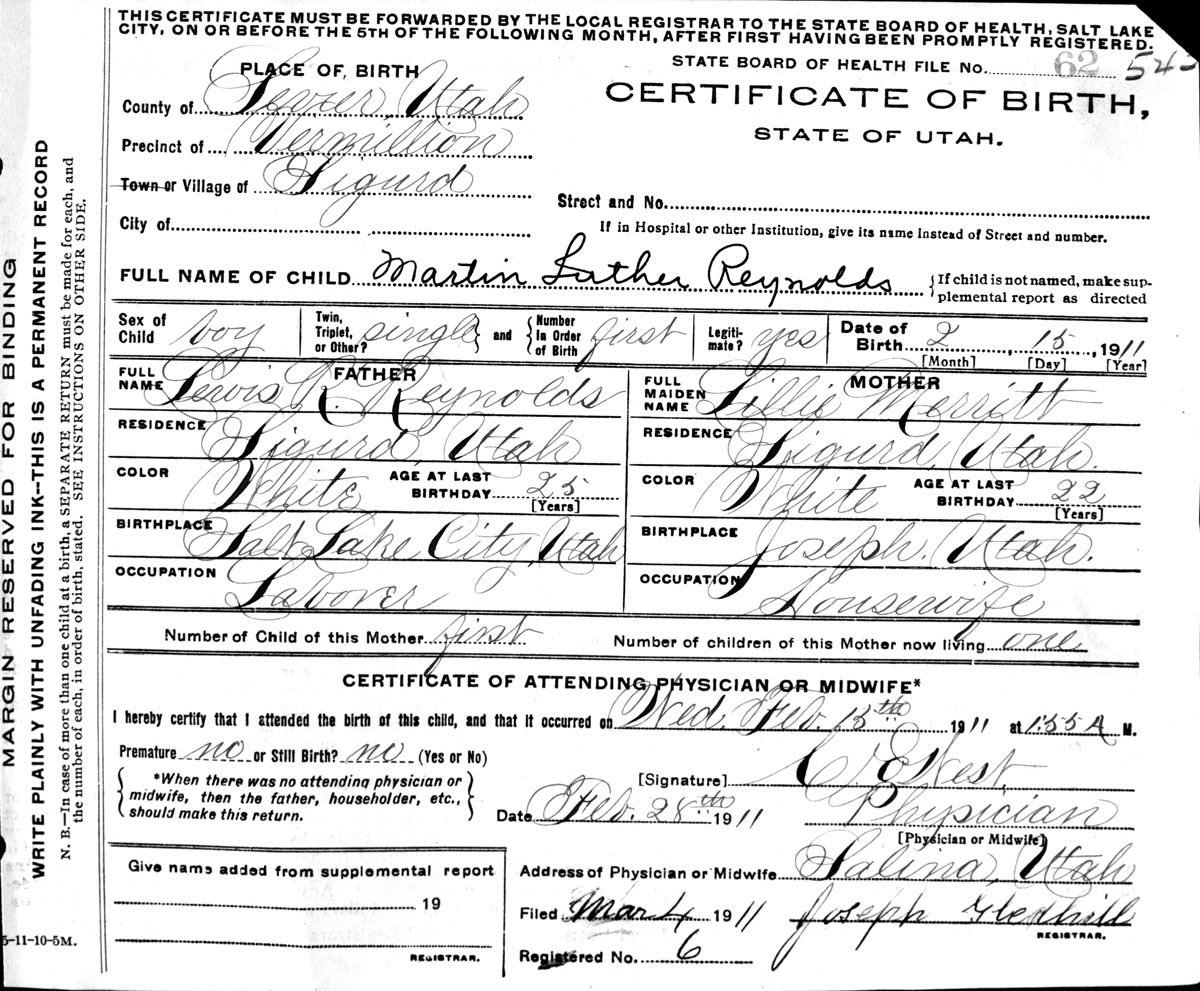 THIS CERTIFICATE MUST BE FORWARDED BY THE LOCAL REGISTRAR TO THE STATE BOARD OF HEALTH, SALT LAKE
CITY, ON OR BEFORE THE 5TH OF THE FOLLOWING MONTH, AFTER FIRST HAVING BEEN PROMPTLY REGISTERED.
STATE BOARD OF HEALTH FILE No. 62 543
PLACE OF BIRTH
CERTIFICATE OF BIRTH,
STATE OF UTAH.
County of Sevier, Utah
Precinct of Vermillion
Town or Village of Sigurd
Street and No.
City of
If in Hospital or other Institution, give its name instead of Street and number.
FULL NAME OF CHILD Martin Luther Reynolds {If child is not named, make sup-
plemental report as directed
Sex of Child boy
Twin, Triplet, or Other? single and Number In Order of Birth first
Legiti-mate? yes
Date of Birth 2, 15, 1911
[Month] [Day] [Year]
FATHER
FULL NAME Lewis R. Reynolds
RESIDENCE Sigurd, Utah
COLOR White AGE AT LAST BIRTHDAY 25
[Years]
BIRTHPLACE Salt Lake City, Utah
OCCUPATION Laborer
MOTHER
FULL MAIDEN NAME Lillie Merritt
RESIDENCE Sigurd, Utah.
COLOR White AGE AT LAST BIRTHDAY 22
[Years]
BIRTHPLACE Joseph, Utah.
OCCUPATION Housewife
Number of Child of this Mother first Number of children of this Mother now living one
CERTIFICATE OF ATTENDING PHYSICIAN OR MIDWIFE*
I hereby certify that I attended the birth of this child, and that it occurred on Wed. Feb. 15th 1911 at 1:55 A M.
Premature no or Still Birth? no (Yes or No)
*When there was no attending physician or
midwife, then the father, householder, etc.,
should make this return.
[Signature] West,
Date Feb. 28th 1911 Physician
[Physician or Midwife]
Address of Physician or Midwife Salina, Utah
Filed Mar 4 1911 Joseph Gledhill
REGISTRAR.
Registered No. 6
Give name added from supplemental report
19
REGISTRAR.
5-11-10-5M.
MARGIN RESERVED FOR BINDING
WRITE PLAINLY WITH UNFADING INK—THIS IS A PERMANENT RECORD
N. B.—In case of more than one child at a birth, a SEPARATE RETURN must be made for each, and
the number of each, in order of birth, stated. SEE INSTRUCTIONS ON OTHER SIDE.